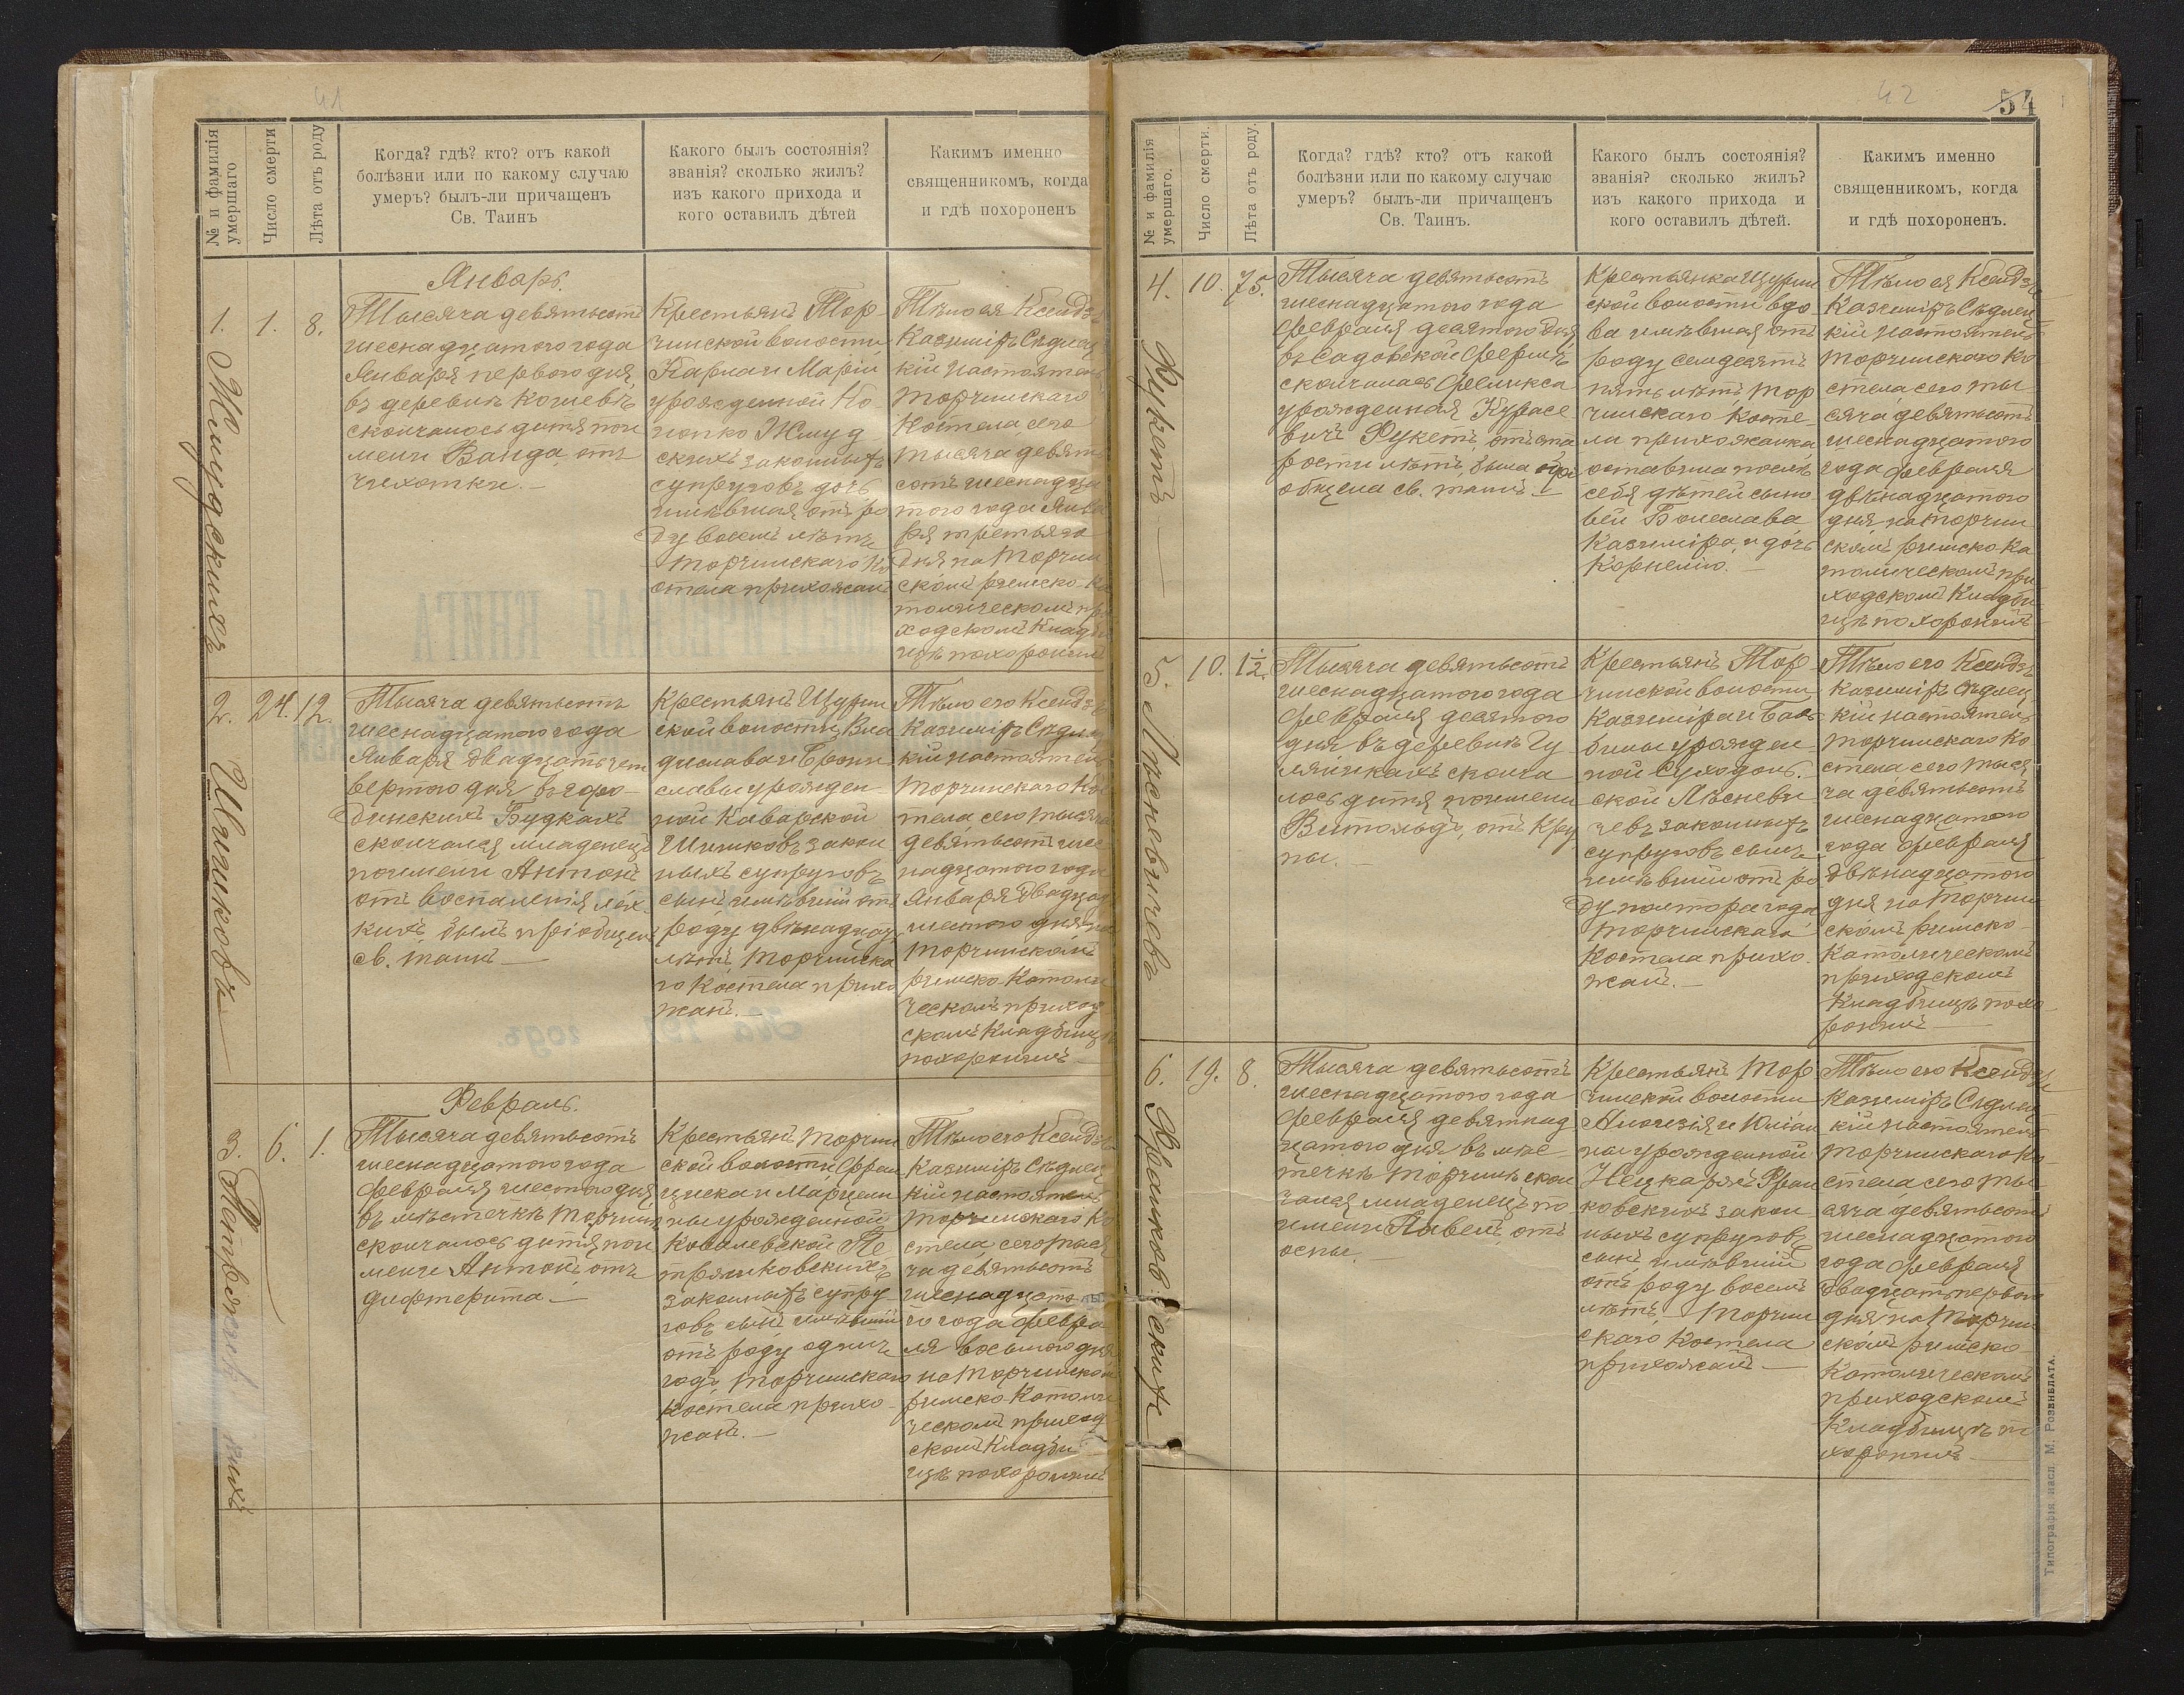 41
№ и фамилія умершаго
Число смерти
Лѣта отъ роду
Когда? гдѣ? кто? отъ какой
болѣзни или по какому случаю
умеръ? былъ-ли причащенъ
Св. Таинъ
Какого былъ состоянія?
званія? сколько жилъ?
изъ какого прихода и
кого оставилъ дѣтей
Какимъ именно
священникомъ, когда
и гдѣ похороненъ
Январь.
1. Жмудскихъ
1.
8.
Тысяча девятьсотъ
шеснадцатого года
Января первого дня,
въ деревнѣ Кошевѣ
скончалось дитя пои
мени Ванда, отъ
чихотки.
Крестьянъ Тор
чинской волости,
Карла и Маріи
урожденной Ко
нопко Жмуд
скихъ законныхъ
супруговъ дочь
имѣвшая отъ ро
ду восемь лѣтъ
Торчинскаго Ко
стела прихожанъ
Тѣло ея Ксендзъ
Казимiръ Сѣдлец
кій Настоятель
Торчинскаго
Костела, сего
тысяча девять
сотъ шеснадца
того года Янва
ря третьяго
дня на Торчин
скомъ римско-Ка
толическомъ при
ходскомъ Кладби
щѣ похоронилъ
2. Шишковъ
24.
12.
Тысяча девятьсотъ
шеснадцатого года
Января двадцать чет
вертого дня въ горо
динскихъ Будкахъ
скончался младенецъ
поимени Антонъ
отъ воспаленія лёх
кихъ, былъ пріобщенъ
св. таинъ
Крестьянъ Щурин
ской волости, Вла
дислава и Брони
славы урожден
ной Каварской
Шишковъ закон
ныхъ супруговъ
сынъ имѣвшій отъ
роду двѣнадцать
лѣтъ, Торчинска
го Костела прихо
жанъ.
Тѣло его Ксендзъ
Казимiръ Сѣдлец
кій настоятель
Торчинскаго Кос
тела, сего тысяча
девятьсотъ шес
надцатого года
Января двадцать
шестого дня на
Торчинскомъ
римско-Католи
ческомъ приход
скомъ Кладбищѣ
похоронилъ
Февраль.
3.
6.
1.
Тысяча девятьсотъ
шеснадцатого года
Февраля шестого дня
въ мѣстечкѣ Торчинѣ
скончалось дитя пои
мени Антонъ отъ
дифтерита
Крестьянъ Торчин
ской волости, Фран
циска и Марцели
ны урожденной
Ковалевской Пе
тряиковскихъ
законныхъ супру
говъ сынъ имѣвшій
отъ роду одинъ
годъ, Торчинскаго
Костела прихо
жанъ.
Тѣло его Ксендзъ
Казимiръ Сѣдлец
кій настоятель
Торчинскаго Ко
стела, сего тыся
ча девятьсотъ
шеснадцато
го года Февра
ля восьмого дня
на Торчинскомъ
римско-Католи
ческомъ приход
скомъ Кладби
щѣ похоронилъ
42
54
№ и фамилія умершаго.
Число смерти.
Лѣта отъ роду.
Когда? гдѣ? кто? отъ какой
болѣзни или по какому случаю
умеръ? былъ-ли причащенъ
Св. Таинъ.
Какого былъ состоянія?
званія? сколько жилъ?
изъ какого прихода и
кого оставилъ дѣтей.
Какимъ именно
священникомъ, когда
и гдѣ похороненъ.
4. Рукетъ
10.
75.
Тысяча девятьсотъ
шеснадцатого года
Февраля десятого дня
въ Садовской Фермѣ
скончалась Феликса
урожденная Курасе
вичъ Рукетъ, отъ ста
рости лѣтъ, была прі
общена св. таинъ
Крестьянка Щурин
ской волости вдо
ва имѣвшая отъ
роду семдесять
пять лѣтъ, Тор
чинскаго Косте
ла прихожанка
оставила послѣ
себя дѣтей сыно
вей Болеслава
Казимiра, и дочь
Корнелію.
Тѣло ея Ксендзъ
Казимiръ Сѣдлец
кій Настоятель
Торчинскаго Ко
стела сего ты
сяча девятьсотъ
шеснадцатого
года Февраля
двѣнадцатого
дня на Торчин
скомъ римско-Ка
толическомъ при
ходскомъ Кладби
щѣ похоронилъ
5. Лѣсневичевъ
10.
1½.
Тысяча девятьсотъ
шеснадцатого года
Февраля десятого
дня въ деревнѣ Гу
ляникахъ сконча
лось дитя поимени
Витольдъ, отъ Кру
пы.
Крестьянъ Тор
чинской волости
Казимiра и Баль
бины урожден
ной Суходоль
ской Лѣсневи
чевъ законныхъ
супруговъ сынъ
имѣвшій отъ ро
ду полтора года
Торчинскаго
Костела прихо
жанъ.
Тѣло его Ксендзъ
Казимiръ Сѣдлец
кій настоятель
Торчинскаго Ко
стела сего тыся
ча девятьсотъ
шеснадцатого
года Февраля
двѣнадцатого
дня на Торчин
скомъ римско-
Католическомъ
приходскомъ
Кладбищѣ похо
ронилъ
6. Франковскихъ
19.
8.
Тысяча девятьсотъ
шеснадцатого года
Февраля девятнад
цатого дня въ мѣс
течкѣ Торчинѣ скон
чался младенецъ по
имени Павелъ, отъ
оспы
Крестьянъ Тор
чинской волости
Алоизія и Юліан
ны урожденной
Нецкаржъ Фран
ковскихъ закон
ныхъ супруговъ
сынъ имѣвшій
отъ роду восемь
лѣтъ, Торчин
скаго Костела
прихожанъ
Тѣло его Ксендзъ
Казимiръ Сѣдлец
кій настоятель
Торчинскаго Ко
стела сего ты
сяча девятьсотъ
шеснадцатого
года Февраля
двадцать первого
дня на Торчин
скомъ римско
Католическомъ
приходскомъ
Кладбищѣ по
хоронилъ
Типографія насл. М. Розенблата.